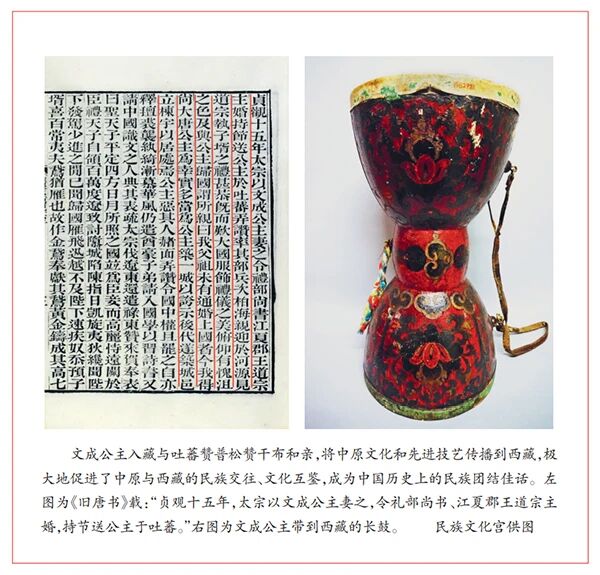 貞觀十五年太宗以文成公主妻之令禮部尚書江夏郡王道宗
主婚持節送公主於吐蕃弄讚率其部兵次柏海親迎於河源見
道宗執子壻之禮甚恭既而歎大國服飾禮儀之美俯仰有愧沮
之色及與公主歸國謂所親曰我父祖未有通婚上國者今我得
尚大唐公主爲幸實多當爲公主築一城以誇示後代遂築城邑
立棟宇以居處焉公主惡其人赭面弄讚令國中權且罷之自亦
釋氊裘襲紈綺漸慕華風仍遣酋豪子弟請入國學以習詩書又
請中國識文之人典其表疏太宗伐遼東還遣祿東贊來賀奉表
曰聖天子平定四方日月所照之國竝爲臣妾而高麗恃遠闕於
臣禮天子自領百萬度遼致討隳城陷陣指日凱旋夷狄纔聞陛
下發駕少進之間已聞歸國雁飛迅越不及陛下速疾奴忝預子
壻喜百常夷夫鵞猶雁也故作金鵞奉獻其鵞黃金鑄成其高七
文成公主入藏与吐蕃赞普松赞干布和亲,将中原文化和先进技艺传播到西藏,极
大地促进了中原与西藏的民族交往、文化互鉴,成为中国历史上的民族团结佳话。左
图为《旧唐书》载:“贞观十五年,太宗以文成公主妻之,令礼部尚书、江夏郡王道宗主
婚,持节送公主于吐蕃。”右图为文成公主带到西藏的长鼓。 民族文化宫供图